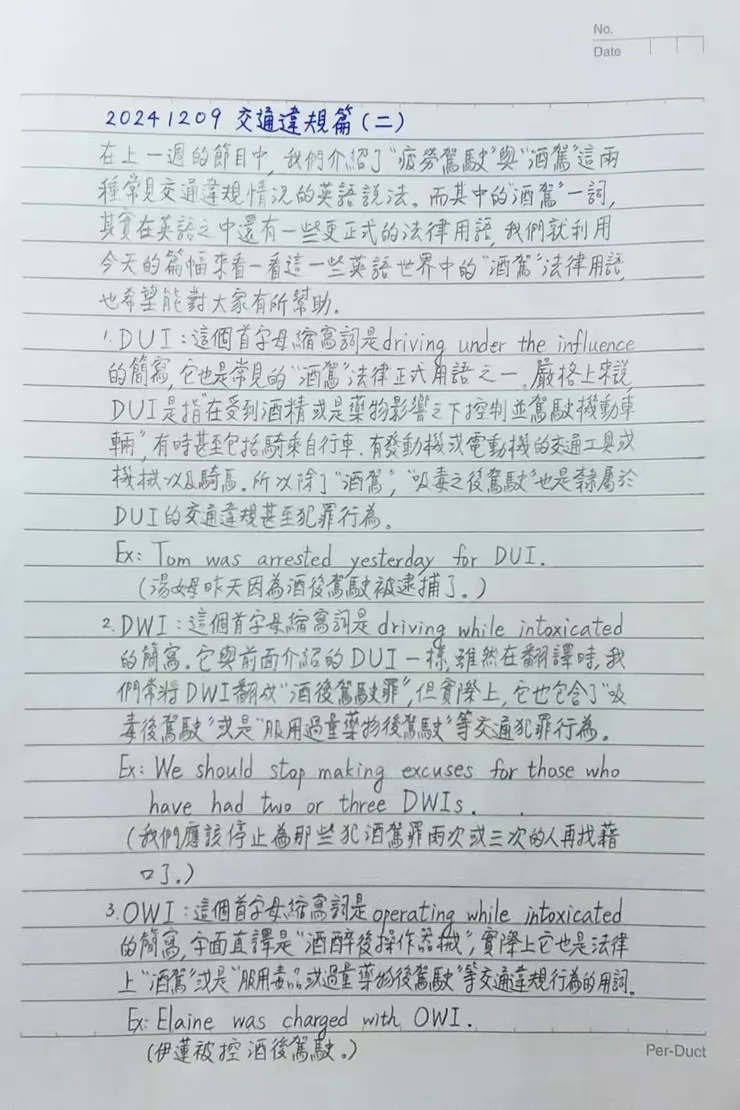 No.
Date
20241209 交通違規篇(二)
在上一週的節目中,我們介紹了"疲勞駕駛"與"酒駕"這兩
種常見交通違規情況的英語說法。而其中的"酒駕"一詞,
其實在英語之中還有一些更正式的法律用語,我們就利用
今天的篇幅來看一看這一些英語世界中的"酒駕"法律用語,
也希望能對大家有所幫助。
1. DUI:這個首字母縮寫詞是driving under the influence
的簡寫,它也是常見的"酒駕"法律正式用語之一。嚴格上來說,
DUI是指"在受到酒精或是藥物影響之下控制並駕駛機動車
輛",有時甚至包括騎乘自行車、有發動機或電動機的交通工具或
機械以及騎馬。所以除了"酒駕","吸毒之後駕駛"也是隸屬於
DUI的交通違規甚至犯罪行為。
Ex: Tom was arrested yesterday for DUI.
(湯姆昨天因為酒後駕駛被逮捕了。)
2. DWI:這個首字母縮寫詞是driving while intoxicated
的簡寫。它與前面介紹的DUI一樣,雖然在翻譯時,我
們常將DWI翻成"酒後駕駛罪",但實際上,它也包含了"吸
毒後駕駛"或是"服用過量藥物後駕駛"等交通犯罪行為。
Ex: We should stop making excuses for those who
have had two or three DWIs.
(我們應該停止為那些犯酒駕罪兩次或三次的人再找藉
口了。)
3. OWI:這個首字母縮寫詞是operating while intoxicated
的簡寫,字面直譯是"酒醉後操作器械",實際上它也是法律
上"酒駕"或是"服用毒品或過量藥物後駕駛"等交通違規行為的用詞。
Ex: Elaine was charged with OWI.
(伊蓮被控酒後駕駛。)
Per-Duct